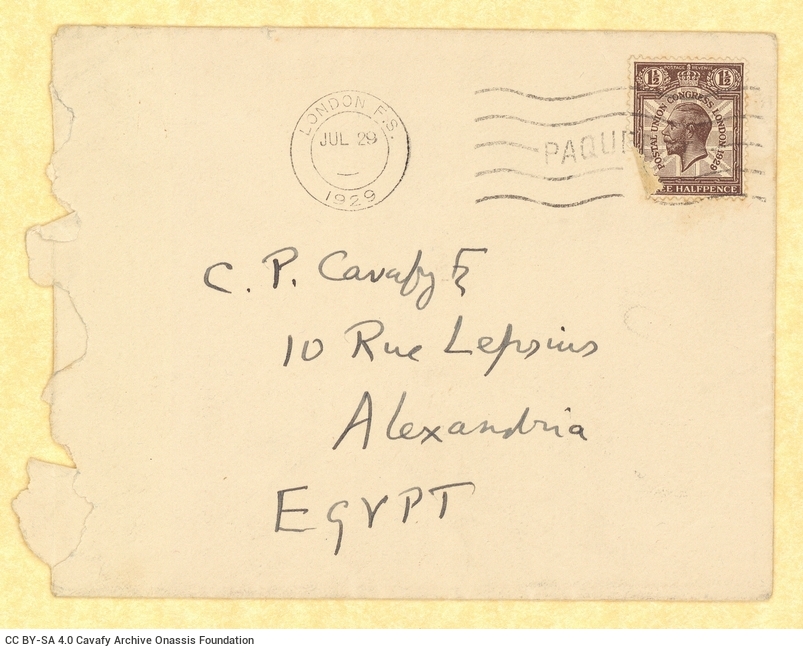 LONDON F.S.
JUL 29
1929
PAQU
POSTAGE REVENUE
1½ 1½
POSTAL UNION CONGRESS LONDON 1929
HALFPENCE
C. P. Cavafy
10 Rue Lepsius
Alexandria
EGYPT
CC BY-SA 4.0 Cavafy Archive Onassis Foundation